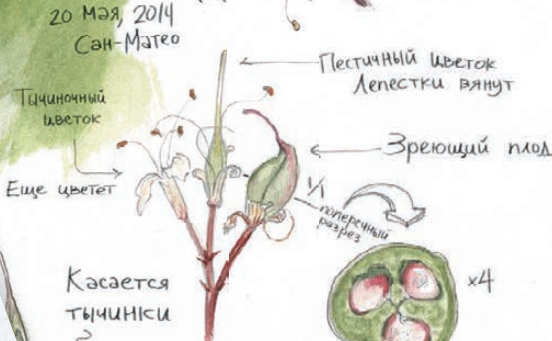 20 мая, 2014
Сан-Матео
Пестичный цветок
Лепестки вянут
Тычиночный
цветок
Зреющий плод
Еще цветет
1/1
поперечный
разрез
Касается
тычинки
×4